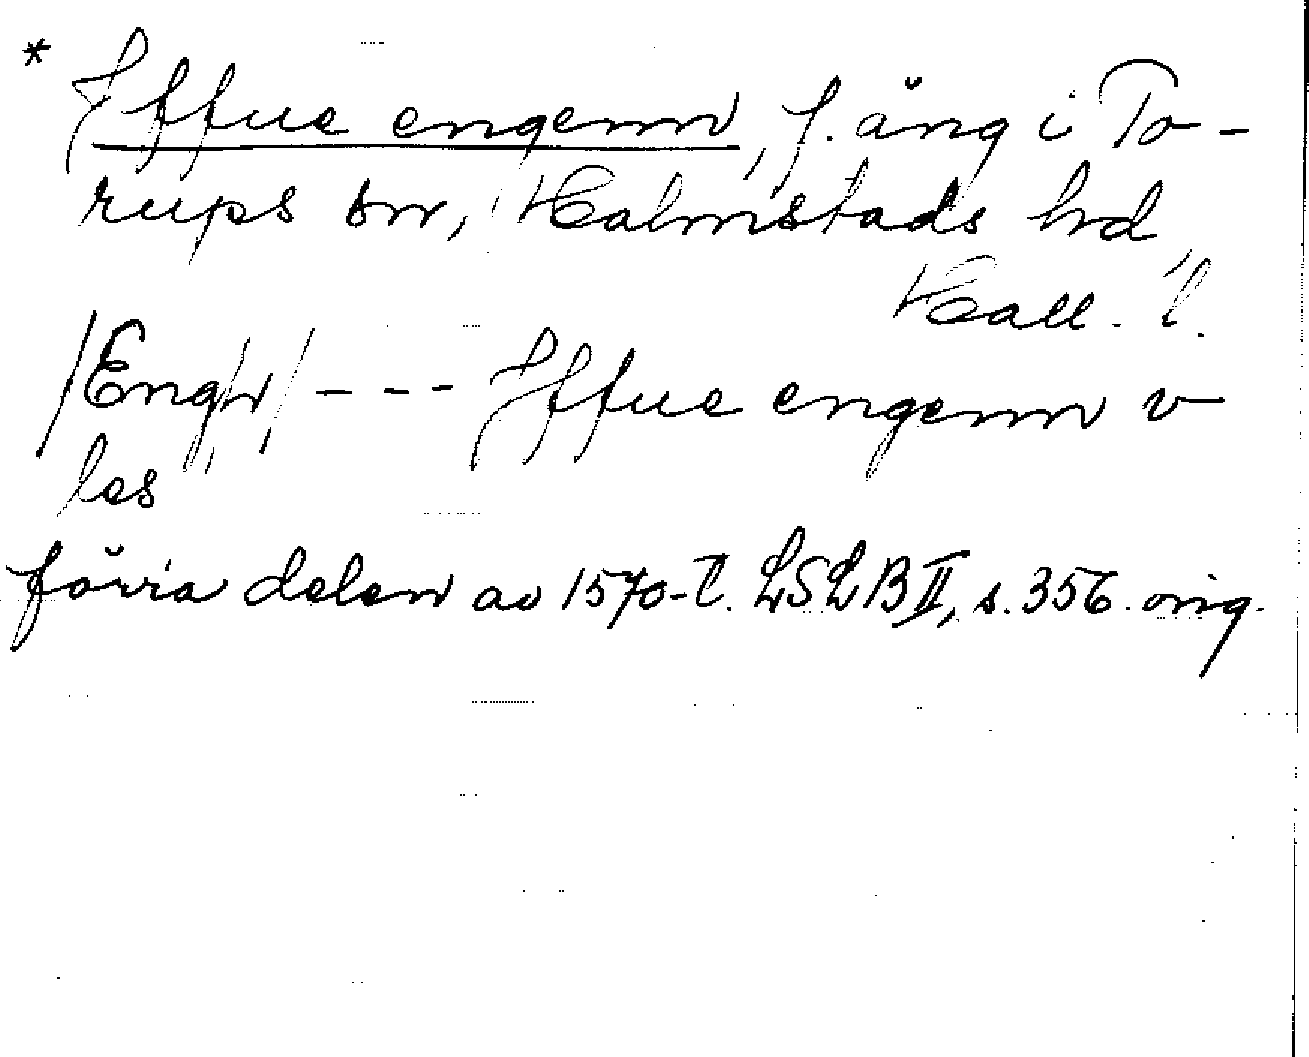 * Iffue engenn, f. äng i To-
rups sn, Halmstads hd,
Hall. l.
/Engh/ - - - Iffue engenn v
les
förra delen av 1570-t. LSLB II, s. 356. orig.